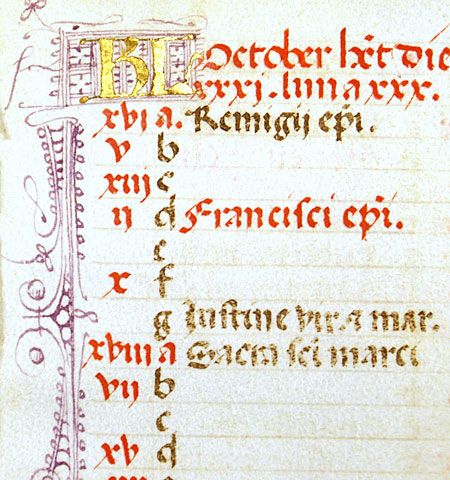 KL October hẽt die
xxxj. luna xxx.
xvi a. Remigij epi.
v b
xiii c
ii d Francisci epi.
e
x f
g Iustine vir. & mar.
xviii a Sacti sci marci
vii b
c
xv d